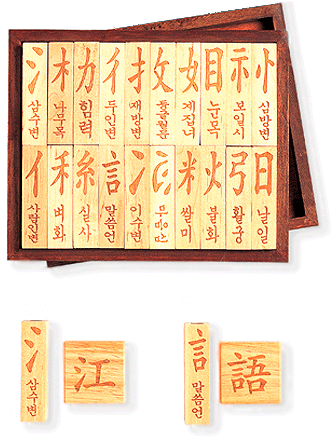 氵 木 力 彳 扌 攵 女 目 礻 忄
삼수변 나무목 힘력 두인변 재방변 계집녀 눈목 보일시 심방변
亻 禾 糸 言 冫 米 火 弓 日
사람인변 벼화 실사 말씀언 이수변 쌀미 불화 활궁 날일
氵 江 言 語
삼수변 말씀언